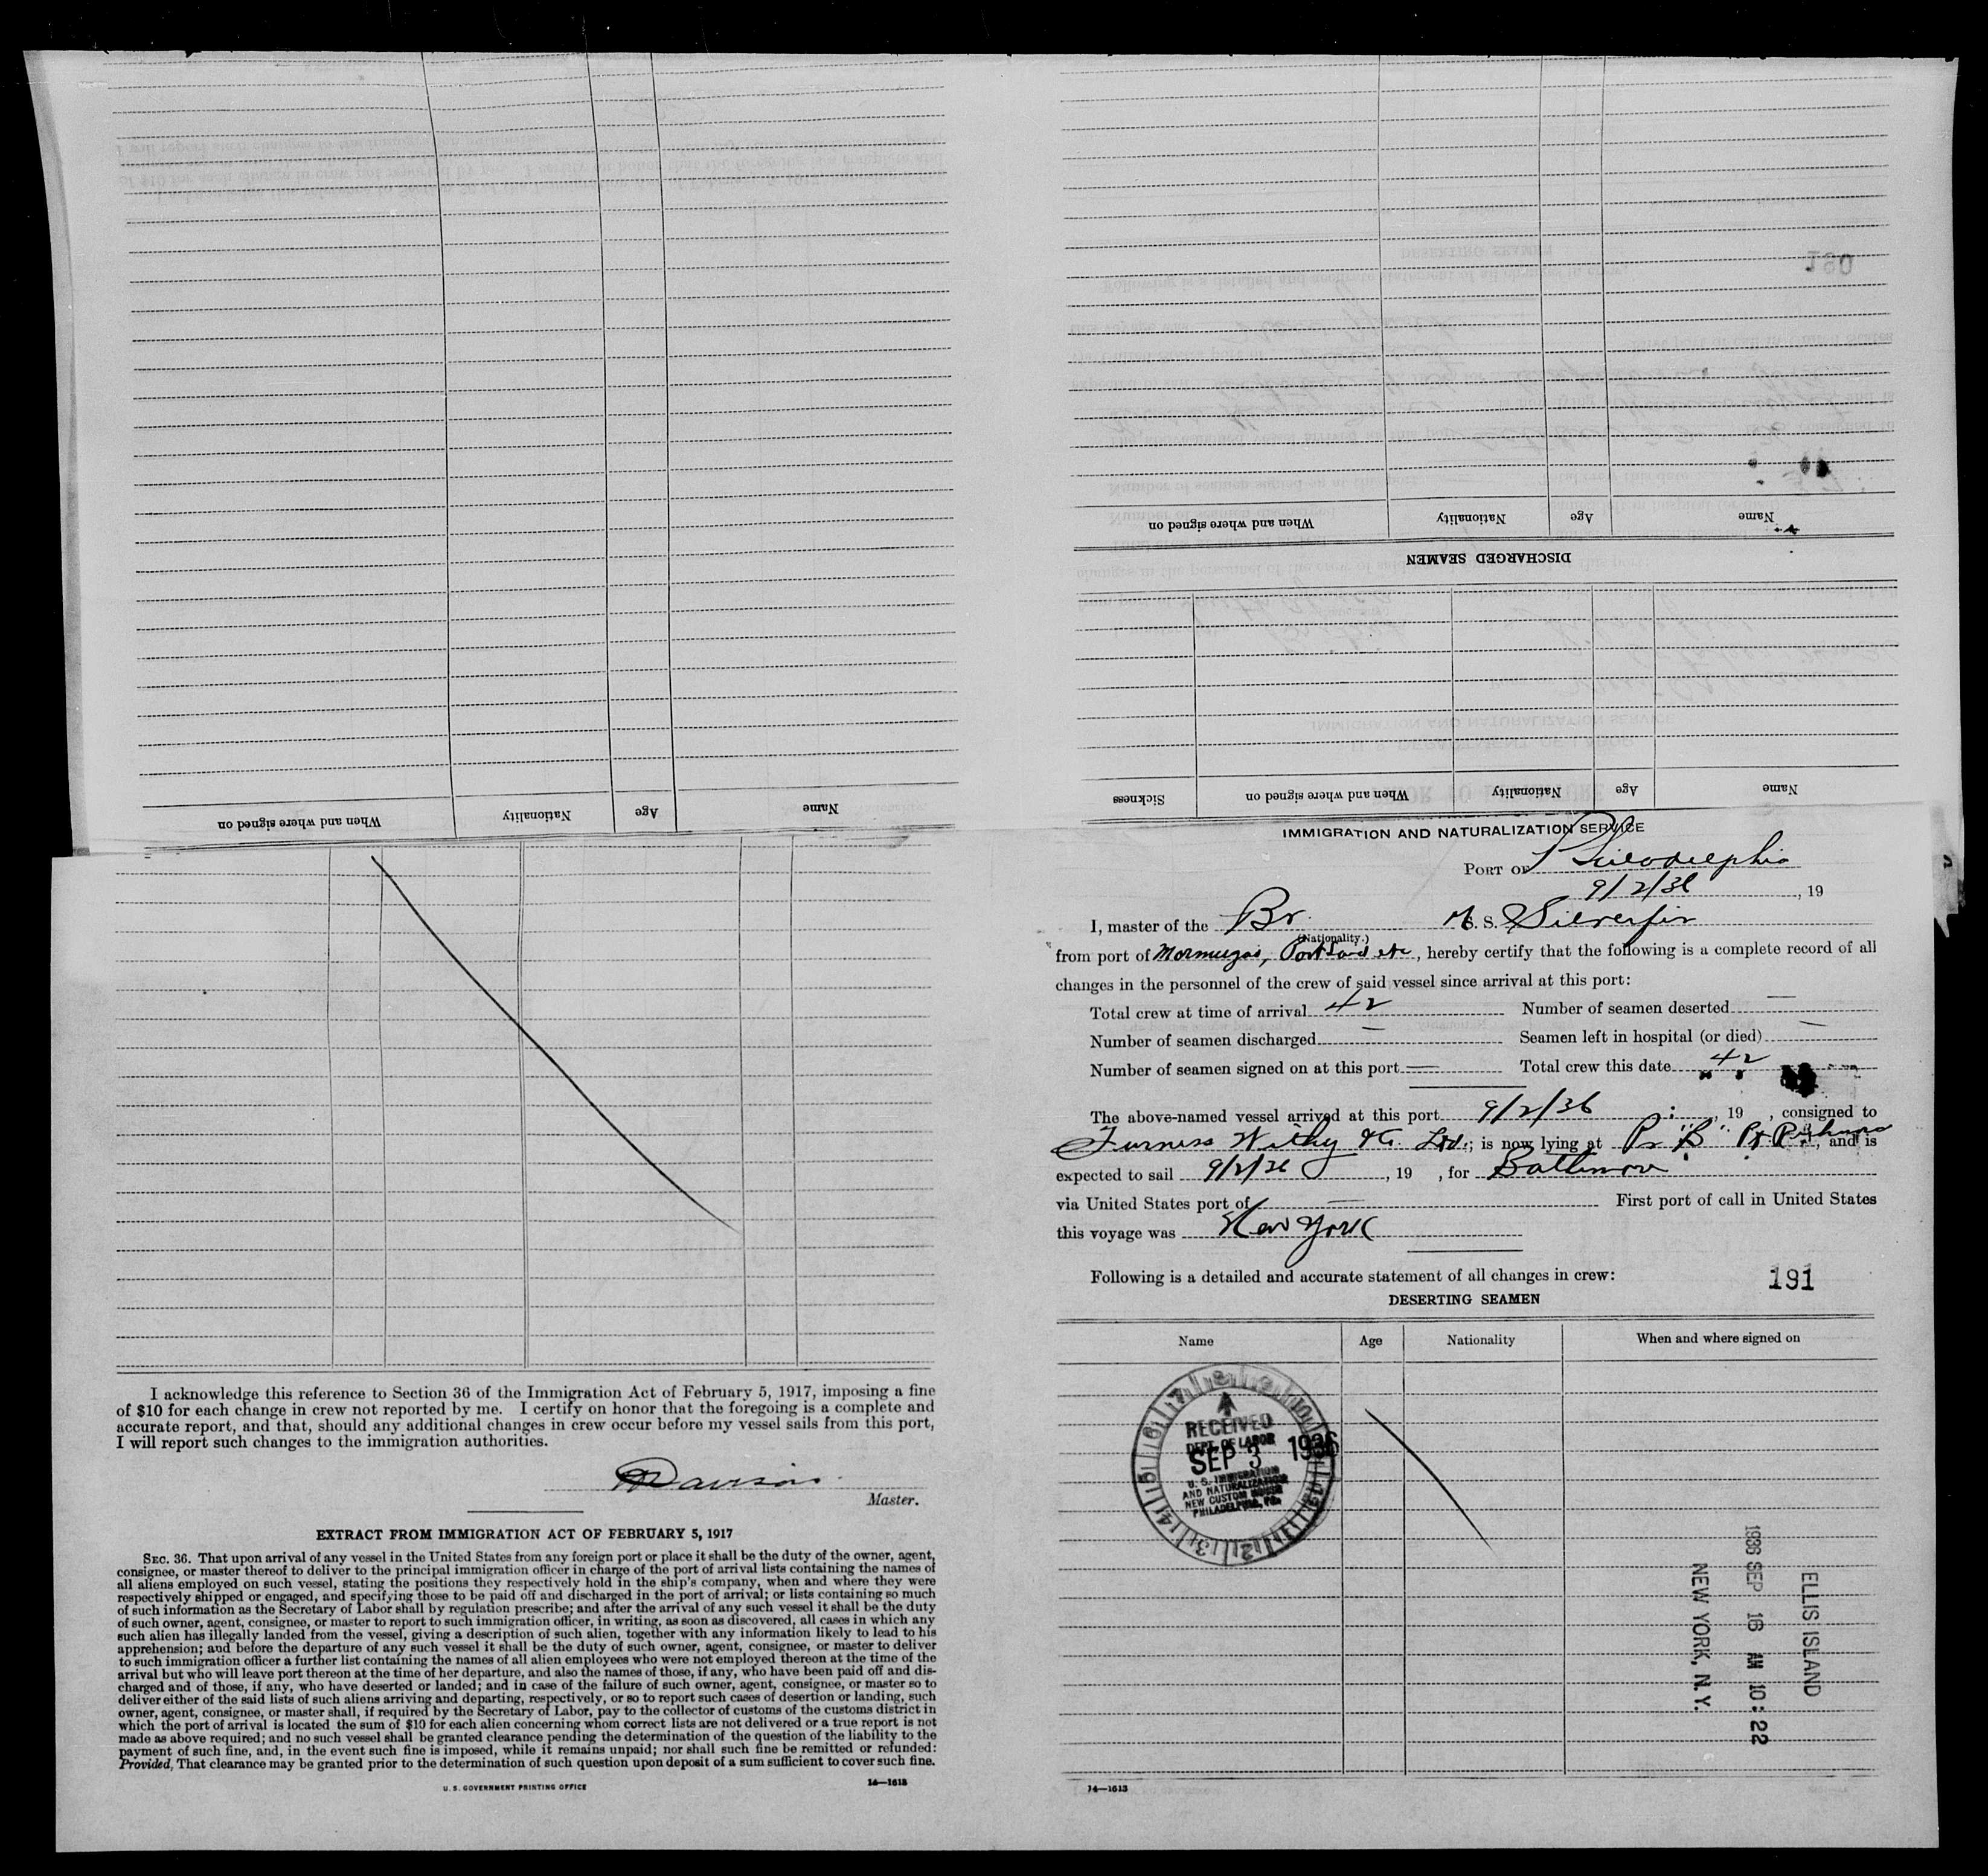 When and where signed on Nationality Age Name
Name Age Nationality When and where signed on
DISCHARGED SEAMEN
Name Age Nationality When and where signed on Sickness
180
IMMIGRATION AND NATURALIZATION SERVICE
PORT OF Philadelphia
9/2/36, 19
I, master of the Br. M.S. Silverfir
(Nationality.)
from port of Mormugao, Port Said etc, hereby certify that the following is a complete record of all
changes in the personnel of the crew of said vessel since arrival at this port:
Total crew at time of arrival 42 Number of seamen deserted —
Number of seamen discharged — Seamen left in hospital (or died) —
Number of seamen signed on at this port — Total crew this date 42
The above-named vessel arrived at this port 9/2/36, 19 , consigned to
Furness Withy & Co. Ltd.; is now lying at Pr "B" Pt Richmond, and is
expected to sail 9/2/36, 19 , for Baltimore
via United States port of — First port of call in United States
this voyage was New York
Following is a detailed and accurate statement of all changes in crew:
191
DESERTING SEAMEN
Name Age Nationality When and where signed on
RECEIVED
DEPT. OF LABOR
SEP 3 1936
U. S. IMMIGRATION
AND NATURALIZATION
NEW CUSTOM HOUSE
PHILADELPHIA, PA.
ELLIS ISLAND
1936 SEP 16 AM 10:22
NEW YORK, N.Y.
14—1613
I acknowledge this reference to Section 36 of the Immigration Act of February 5, 1917, imposing a fine
of $10 for each change in crew not reported by me. I certify on honor that the foregoing is a complete and
accurate report, and that, should any additional changes in crew occur before my vessel sails from this port,
I will report such changes to the immigration authorities.
Davison
Master.
EXTRACT FROM IMMIGRATION ACT OF FEBRUARY 5, 1917
SEC. 36. That upon arrival of any vessel in the United States from any foreign port or place it shall be the duty of the owner, agent,
consignee, or master thereof to deliver to the principal immigration officer in charge of the port of arrival lists containing the names of
all aliens employed on such vessel, stating the positions they respectively hold in the ship's company, when and where they were
respectively shipped or engaged, and specifying those to be paid off and discharged in the port of arrival; or lists containing so much
of such information as the Secretary of Labor shall by regulation prescribe; and after the arrival of any such vessel it shall be the duty
of such owner, agent, consignee, or master to report to such immigration officer, in writing, as soon as discovered, all cases in which any
such alien has illegally landed from the vessel, giving a description of such alien, together with any information likely to lead to his
apprehension; and before the departure of any such vessel it shall be the duty of such owner, agent, consignee, or master to deliver
to such immigration officer a further list containing the names of all alien employees who were not employed thereon at the time of the
arrival but who will leave port thereon at the time of her departure, and also the names of those, if any, who have been paid off and dis-
charged and of those, if any, who have deserted or landed; and in case of the failure of such owner, agent, consignee, or master so to
deliver either of the said lists of such aliens arriving and departing, respectively, or so to report such cases of desertion or landing, such
owner, agent, consignee, or master shall, if required by the Secretary of Labor, pay to the collector of customs of the customs district in
which the port of arrival is located the sum of $10 for each alien concerning whom correct lists are not delivered or a true report is not
made as above required; and no such vessel shall be granted clearance pending the determination of the question of the liability to the
payment of such fine, and, in the event such fine is imposed, while it remains unpaid; nor shall such fine be remitted or refunded:
Provided, That clearance may be granted prior to the determination of such question upon deposit of a sum sufficient to cover such fine.
U. S. GOVERNMENT PRINTING OFFICE 14—1613